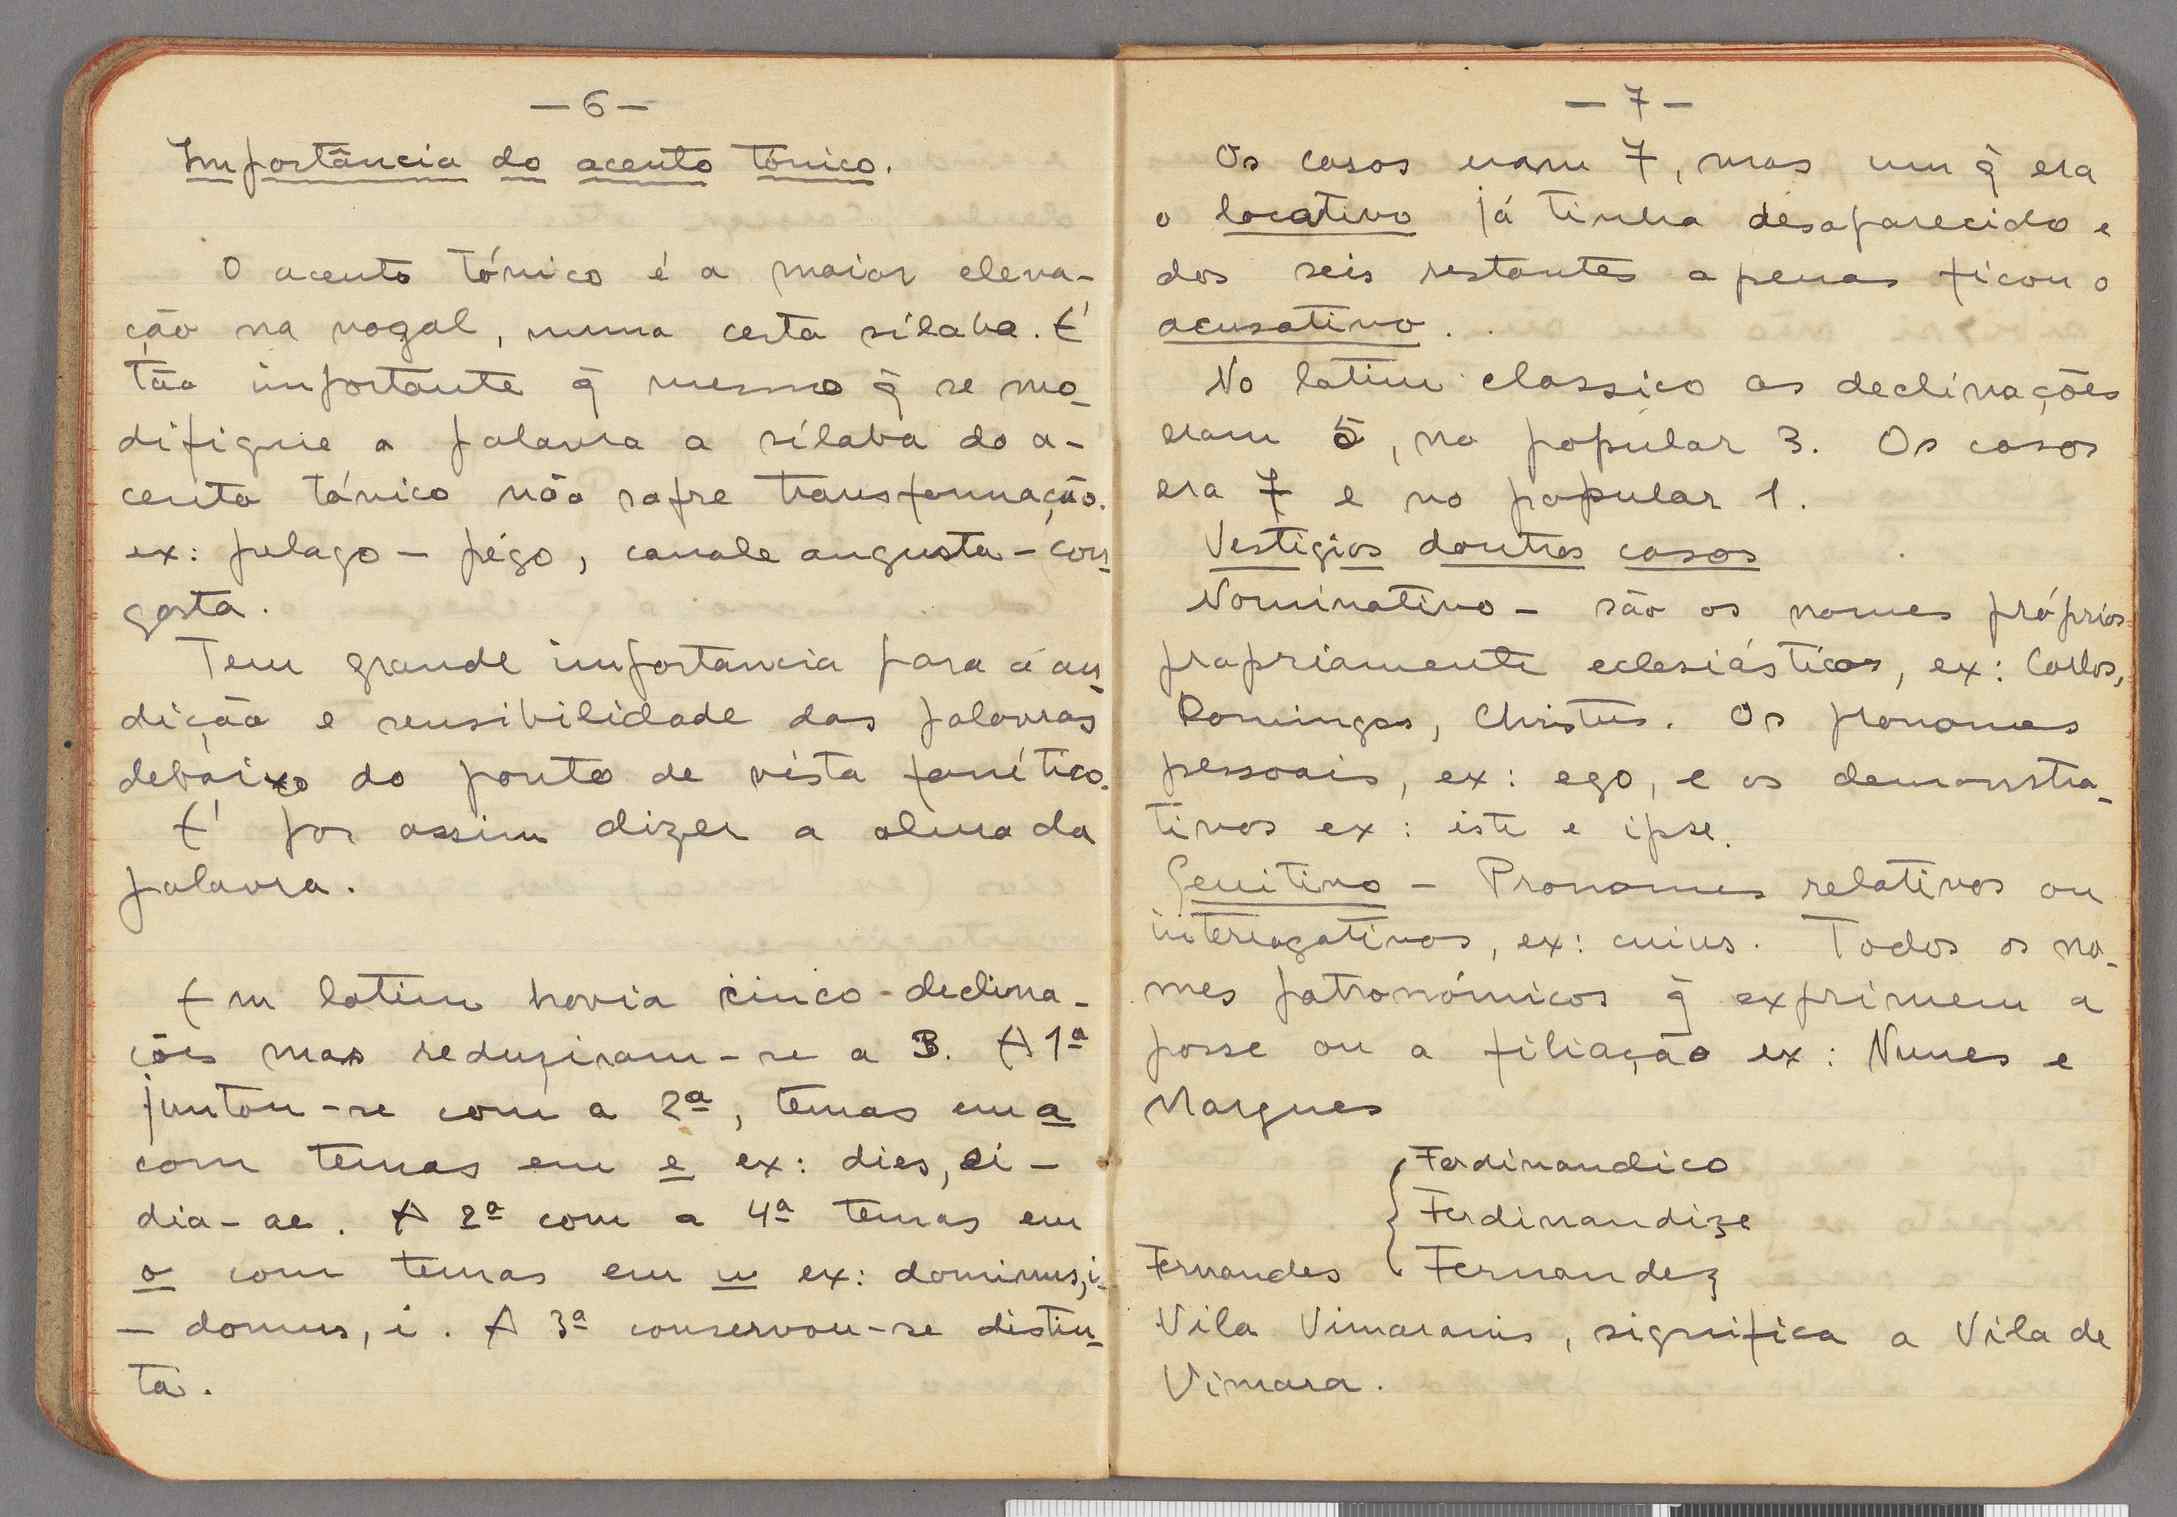 — 6 —
Importância do acento tónico.
O acento tónico é a maior eleva-
ção na vogal, numa certa sílaba. É
tão importante q̃ mesmo q̃ se mo-
difique a palavra a sílaba do a-
cento tónico não sofre transformação.
ex: pelago – pégo, canale angusta – con-
gosta.
Tem grande importancia para a au-
dição e sensibilidade das palavras
debaixo do ponto de vista fonético.
É por assim dizer a alma da
palavra.
Em latim havia cinco declina-
ções mas reduziram-se a 3. A 1ª
juntou-se com a 2ª, temas em a
com temas em e ex: dies, ei –
dia-ae. A 2ª com a 4ª temas em
o com temas em u ex: dominus, i-
– domus, i. A 3ª conservou-se distin-
ta.
— 7 —
Os casos eram 7, mas um q̃ era
o locativo já tinha desaparecido e
dos seis restantes apenas ficou o
acusativo.
No latim classico as declinações
eram 5, no popular 3. Os casos
era 7 e no popular 1.
Vestigios doutros casos
Nominativo – são os nomes próprios
propriamente eclesiásticos, ex: Carlos,
Domingos, Christus. Os pronomes
pessoais, ex: ego, e os demonstra-
tivos ex: iste e ipse.
Genitivo – Pronomes relativos ou
interrogativos, ex: cuius. Todos os no-
mes patronómicos q̃ exprimem a
posse ou a filiação ex: Nunes e
Marques
Ferdinandico
Ferdinandize
Fernandes { Fernandez
Vila Vimaranis, significa a Vila de
Vimara.